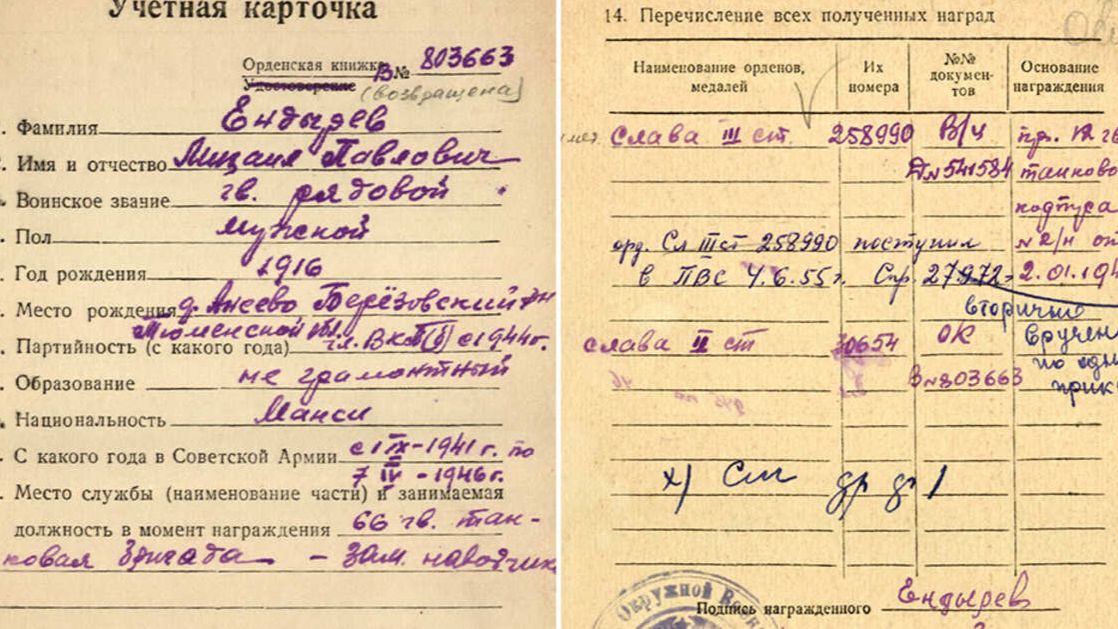 Учетная карточка
Орденская книжка В№ 803663
Удостоверение (возвращена)
Фамилия Ендырев
Имя и отчество Михаил Павлович
Воинское звание гв. рядовой
Пол мужской
Год рождения 1916
Место рождения д. Анеево Берёзовский р-н
Тюменской обл.
Партийность (с какого года) чл. ВКП(б) с 1944г.
Образование не грамотный
Национальность Манси
С какого года в Советской Армии с 1 IX-1941 г. по
7 IV - 1946г.
Место службы (наименование части) и занимаемая
должность в момент награждения 66 гв. тан-
ковая бригада - зам. наводчик
14. Перечисление всех полученных наград
Наименование орденов, медалей
Их номера
№№ документов
Основание награждения
Слава III ст. 258990 В/ч пр. 12 гв
Д№541584 танково
корпуса
орд. Сл IIIст 258990 поступил №2/н от
в ПВС 4.6.55г. Спр. 27972 2.01.194
вторично
Слава II ст 30654 ОК вручен
В№803663 по одн
прик
х) См др
Окружной Вое
Подпись награжденного Ендырев